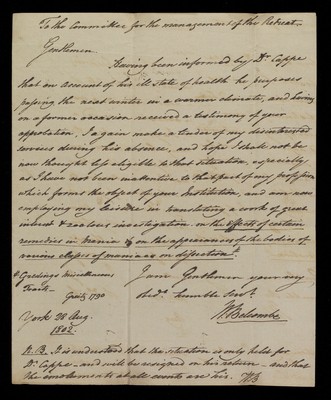 To the Committee for the management of the Retreat.
Gentlemen
Having been informed by Dr. Cappe
that on account of his ill state of health he proposes
passing the next winter in a warmer climate, and having
on a former occasion received a testimony of your
approbation, I again make a tender of my disinterested
services during his absence, and hope I shall not be
now thought less eligible to that situation, especially
as I have not been inattentive to that part of my profession
which forms the object of your Institution, and am now
employing my leisure in translating a work of great
interest & zealous investigation, on the effects of certain
remedies in Mania & on the appearances of the bodies of
various classes of maniacs on dissection +
+ Gredings Miscellaneous
Tracts.
1790
I am Gentlemen your very
obedt. humble Servt.
W Belcombe
York 28 Aug.
1802.
N.B. It is understood that the situation is only held for
Dr. Cappe - and will be resigned on his return - and that
the emoluments at all events are his. WB